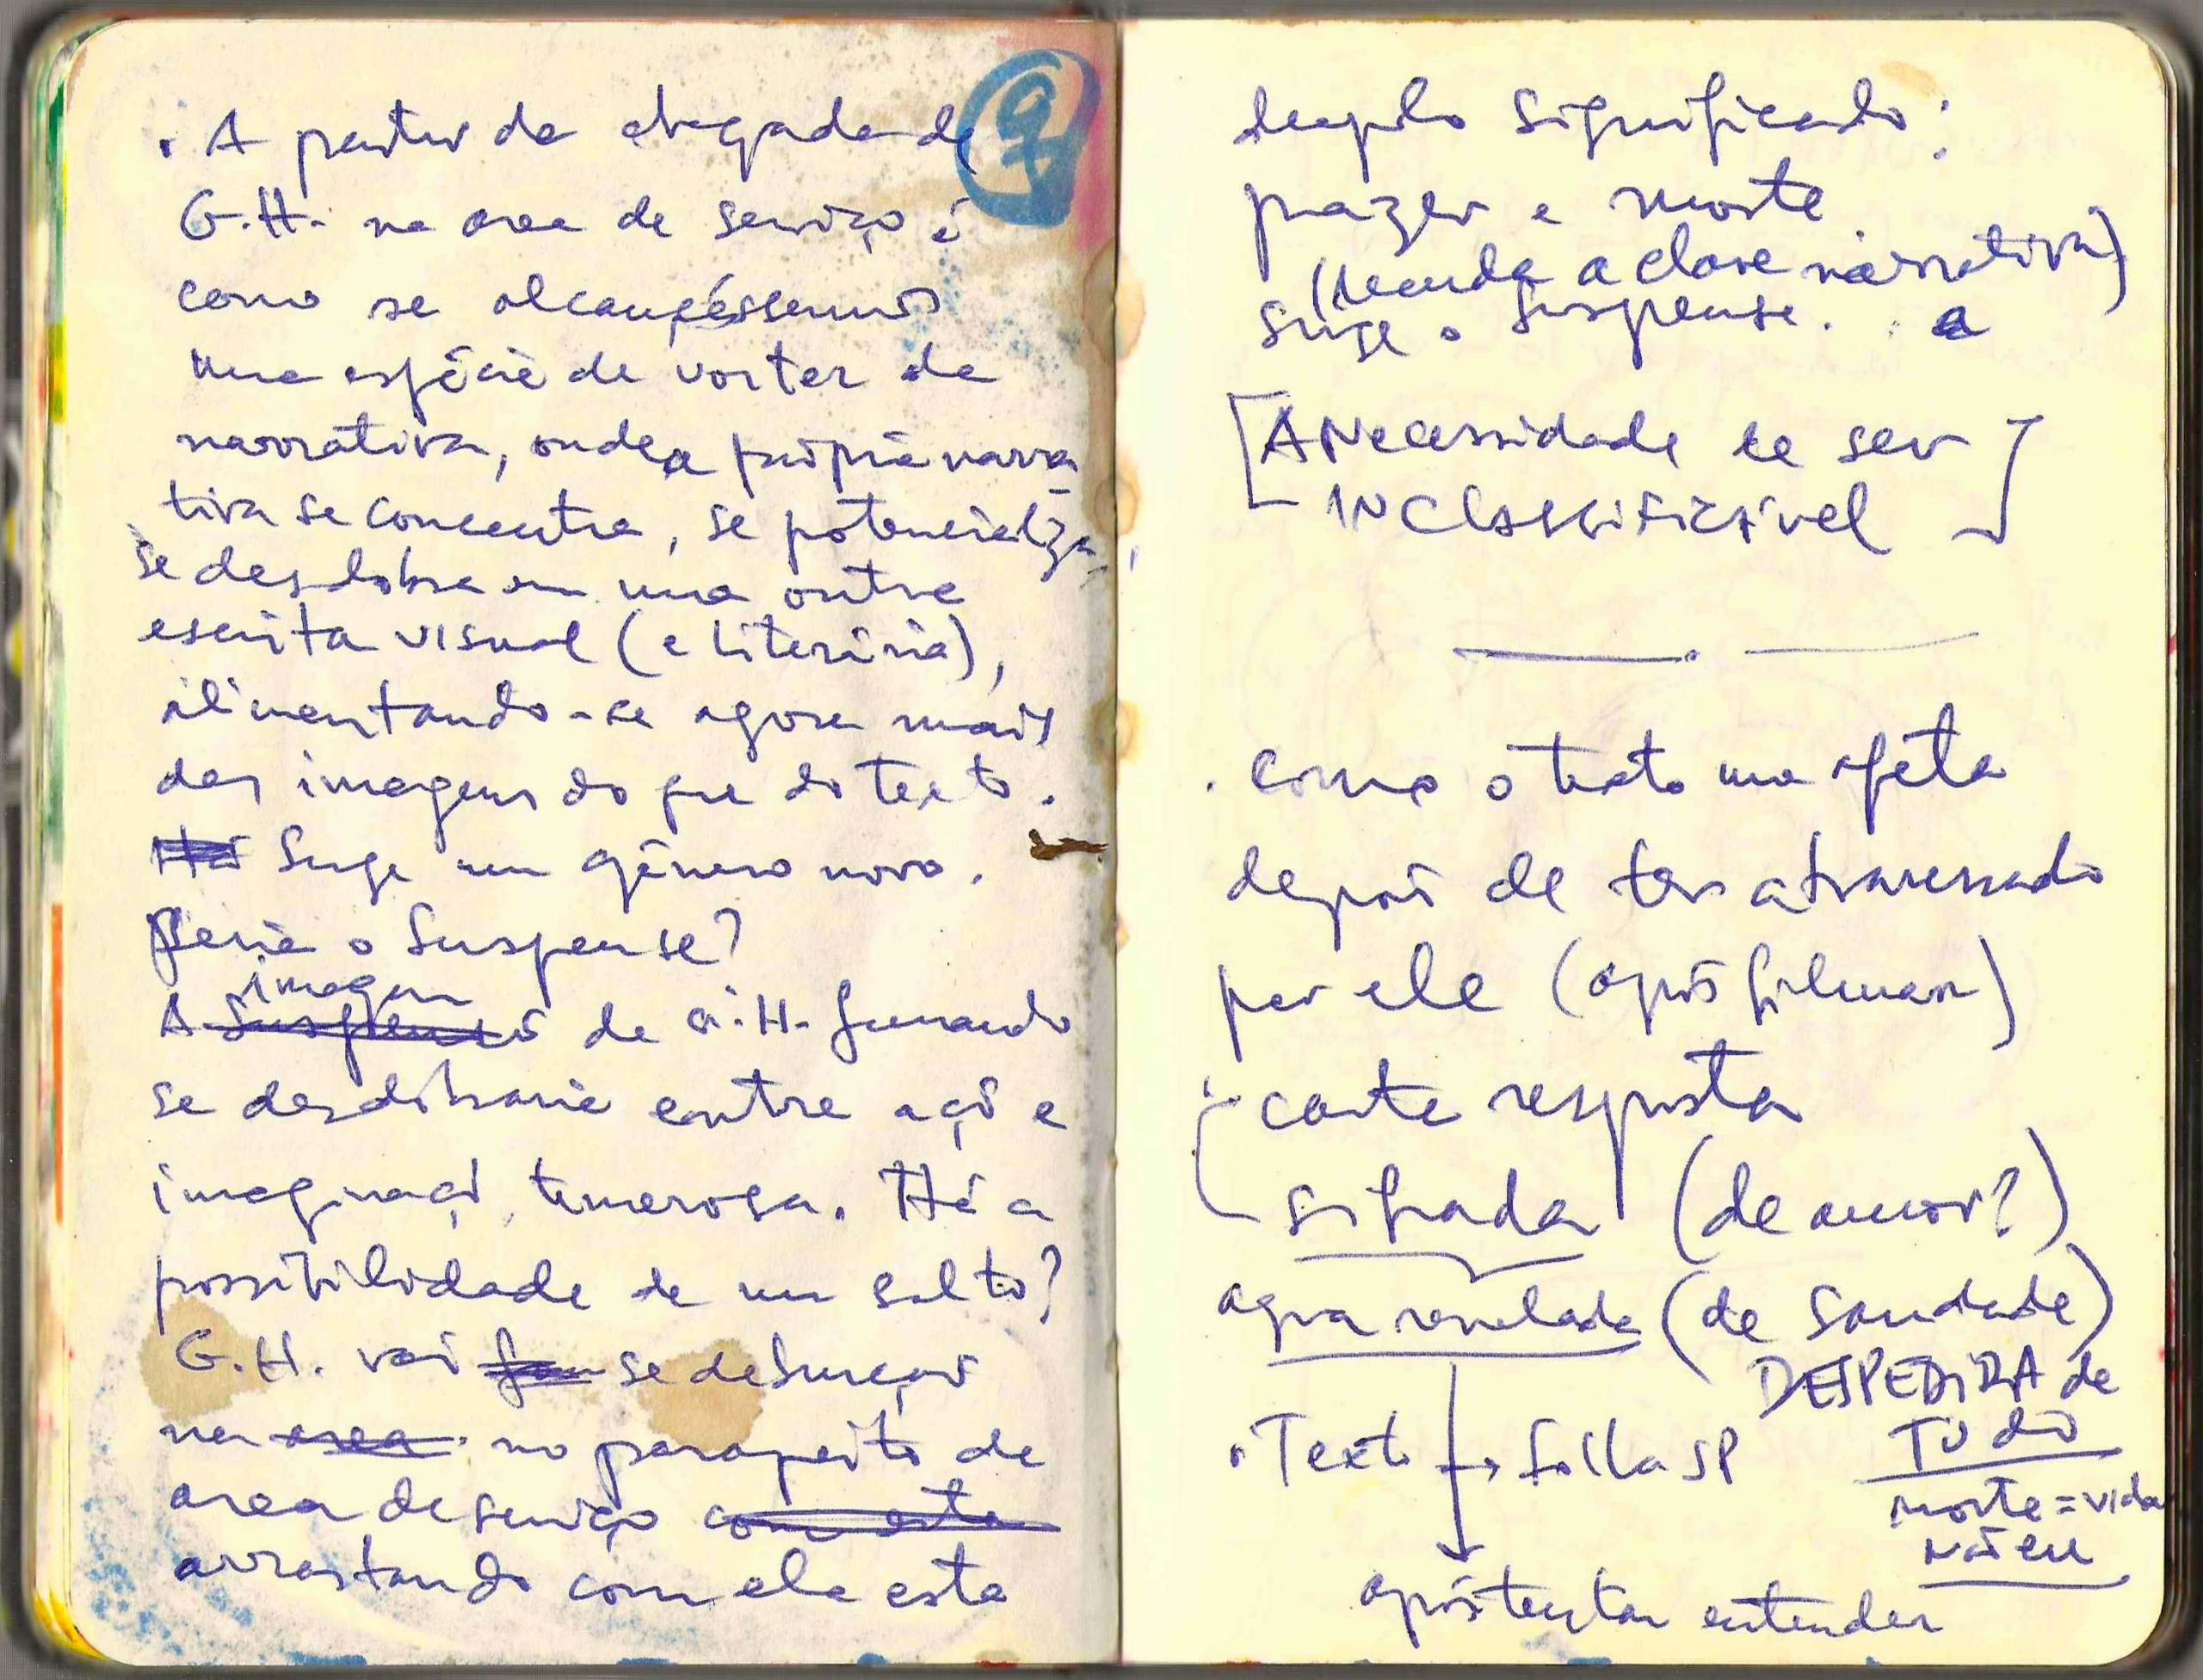 • A partir da chegada de
G.H. na area de serviço é
como se alcançássemos
uma espécie de vortex da
narrativa, onde a própria narra
tiva se concentra, se potencializa,
se desdobra em uma outra
escrita visual (e literária),
alimentando-se agora mais
das imagens do que do texto.
Há Surge um gênero novo.
Seria o Suspense?
imagem
A de G.H. fumando
se desdobraria entre ação e
imaginação temerosa. Há a
possibilidade de um salto?
G.H. vai se debruçar
na area no parapeito da
area de serviço com esta
arrastando com ela este
duplo significado:
prazer e morte
(segunda a clave narrativa)
surge o suspense. a
[A Necessidade de ser
INClassificável]
• como o texto me afeta
depois de ter atravessado
por ele (após filmar)
: carta resposta
sifrada (de amor?)
agora revelada (de saudade)
DESPEDIDA de
TUDO
• Texto → Folha SP
morte = vida
não eu
após tentar entender